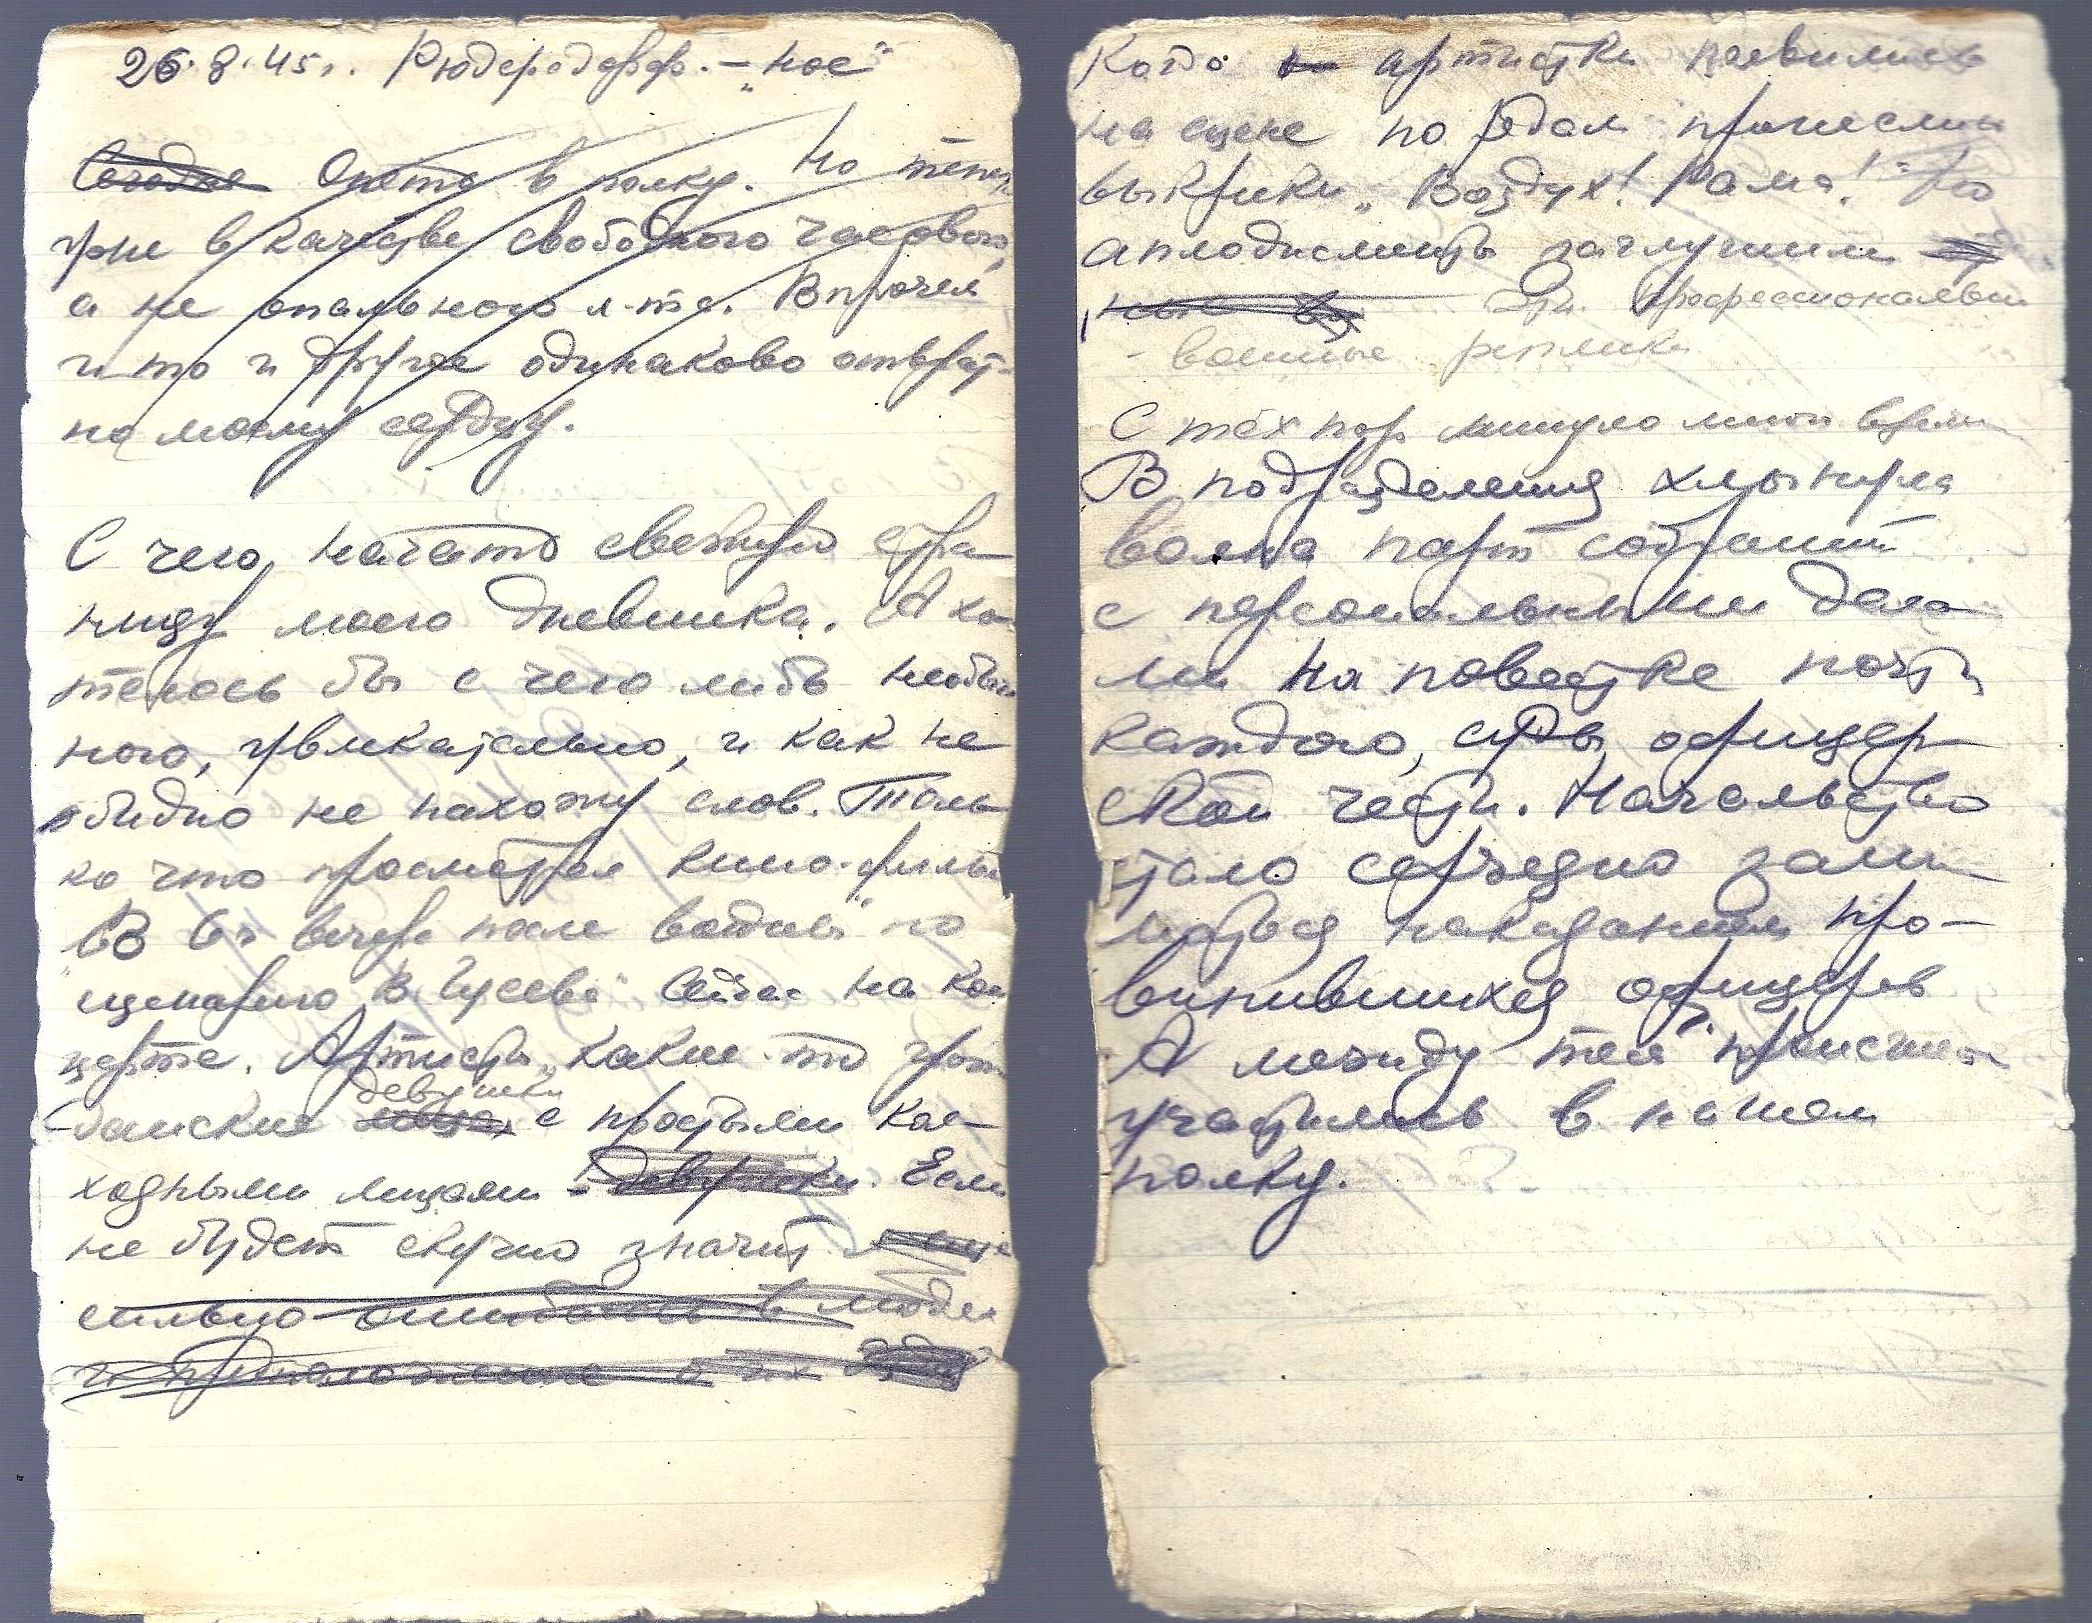 26.8.45г. Рюдерсдорф. – „ное"
Сегодня Опять в полку. Но тепер
уже в качестве свободного часового,
а не опального л-та. Впрочем
и то и другое одинаково отврат-
но моему сердцу.
С чего начать свежую стра-
ницу моего дневника. А хо
телось бы с чего либо необыч
ного, увлекательно, и как не
обидно не нахожу слов. Толь
ко что просмотрел кино-фильм
„В 6ч вечера после войны" по
сценарию В. Гусева Сейчас на кон
церте. Артисты, какие-то граж
девушки
данские с простыми кол-
хозными лицами – девушки. Если
не будет скучно значит
сильно ошибаюсь в людях
и предположение о них
Когда артистки появились
на сцене по рядам пронеслись
выкрики „Воздух! Рама!" Но
аплодисменты заглушили
эти профессионально
- военные реплики
С тех пор минуло много времени
В подразделения хлынула
волна парт собраний
с персональными дела
ми на повестке почти
каждого, суды офицер
ской чести. Начальство
стало серъезно зани
маться наказанием про-
винившихся офицеров
А между тем происшест
участились в нашем
полку.